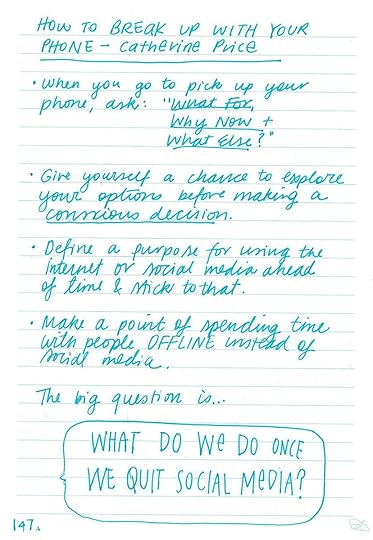 HOW TO BREAK UP WITH YOUR
PHONE - Catherine Price
• When you go to pick up your
phone, ask: "What For,
Why Now +
What Else?"
• Give yourself a chance to explore
your options before making a
conscious decision.
• Define a purpose for using the
internet or social media ahead
of time & stick to that.
• Make a point of spending time
with people OFFLINE instead of
social media.
The big question is...
WHAT DO WE DO ONCE
WE QUIT SOCIAL MEDIA?
147.